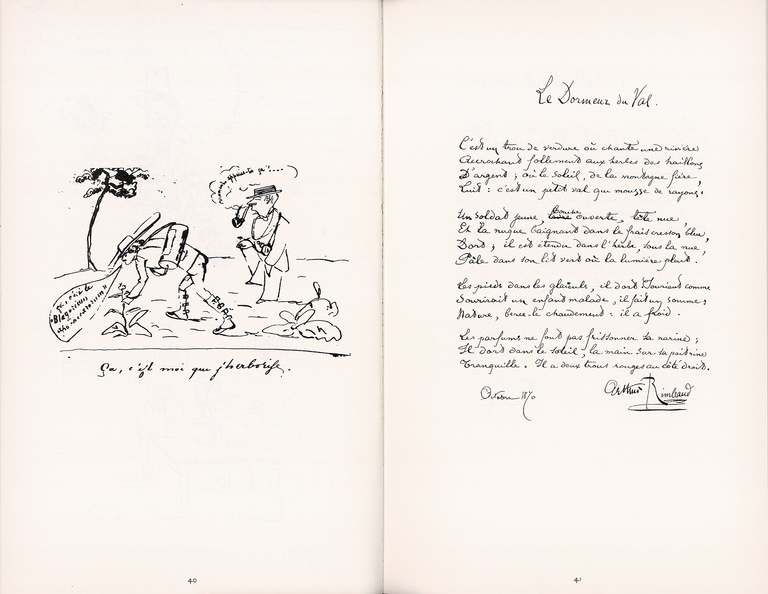 Ça, c'est moi que j'herborise.
40
Le Dormeur du Val.
C'est un trou de verdure où chante une rivière
Accrochant follement aux herbes des haillons
D'argent ; où le soleil, de la montagne fière,
Luit : c'est un petit val qui mousse de rayons.
Un soldat jeune, bouche ouverte, tête nue,
Et la nuque baignant dans le frais cresson bleu,
Dort ; il est étendu dans l'herbe, sous la nue
Pâle dans son lit vert où la lumière pleut.
Les pieds dans les glaïeuls, il dort. Souriant comme
Sourirait un enfant malade, il fait un somme :
Nature, berce-le chaudement : il a froid.
Les parfums ne font pas frissonner sa narine ;
Il dort dans le soleil, la main sur sa poitrine
Tranquille. Il a deux trous rouges au côté droit.
Octobre 1870
Arthur Rimbaud
41